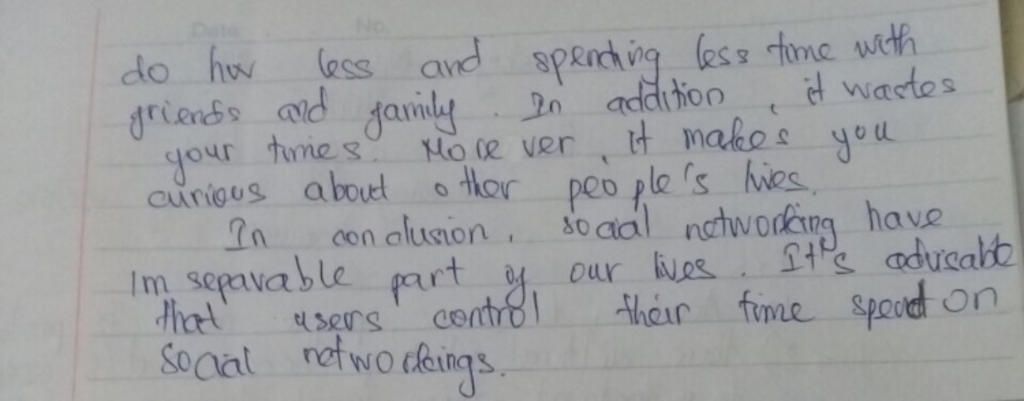 Date No.
do hw less and spending less time with
friends and family. In addition, it wastes
your times. More ver, it makes you
curious about other people's lives.
In conclusion, social networking have
Im separable part of our lives. It's advisable
that users control their time spent on
social networkings.